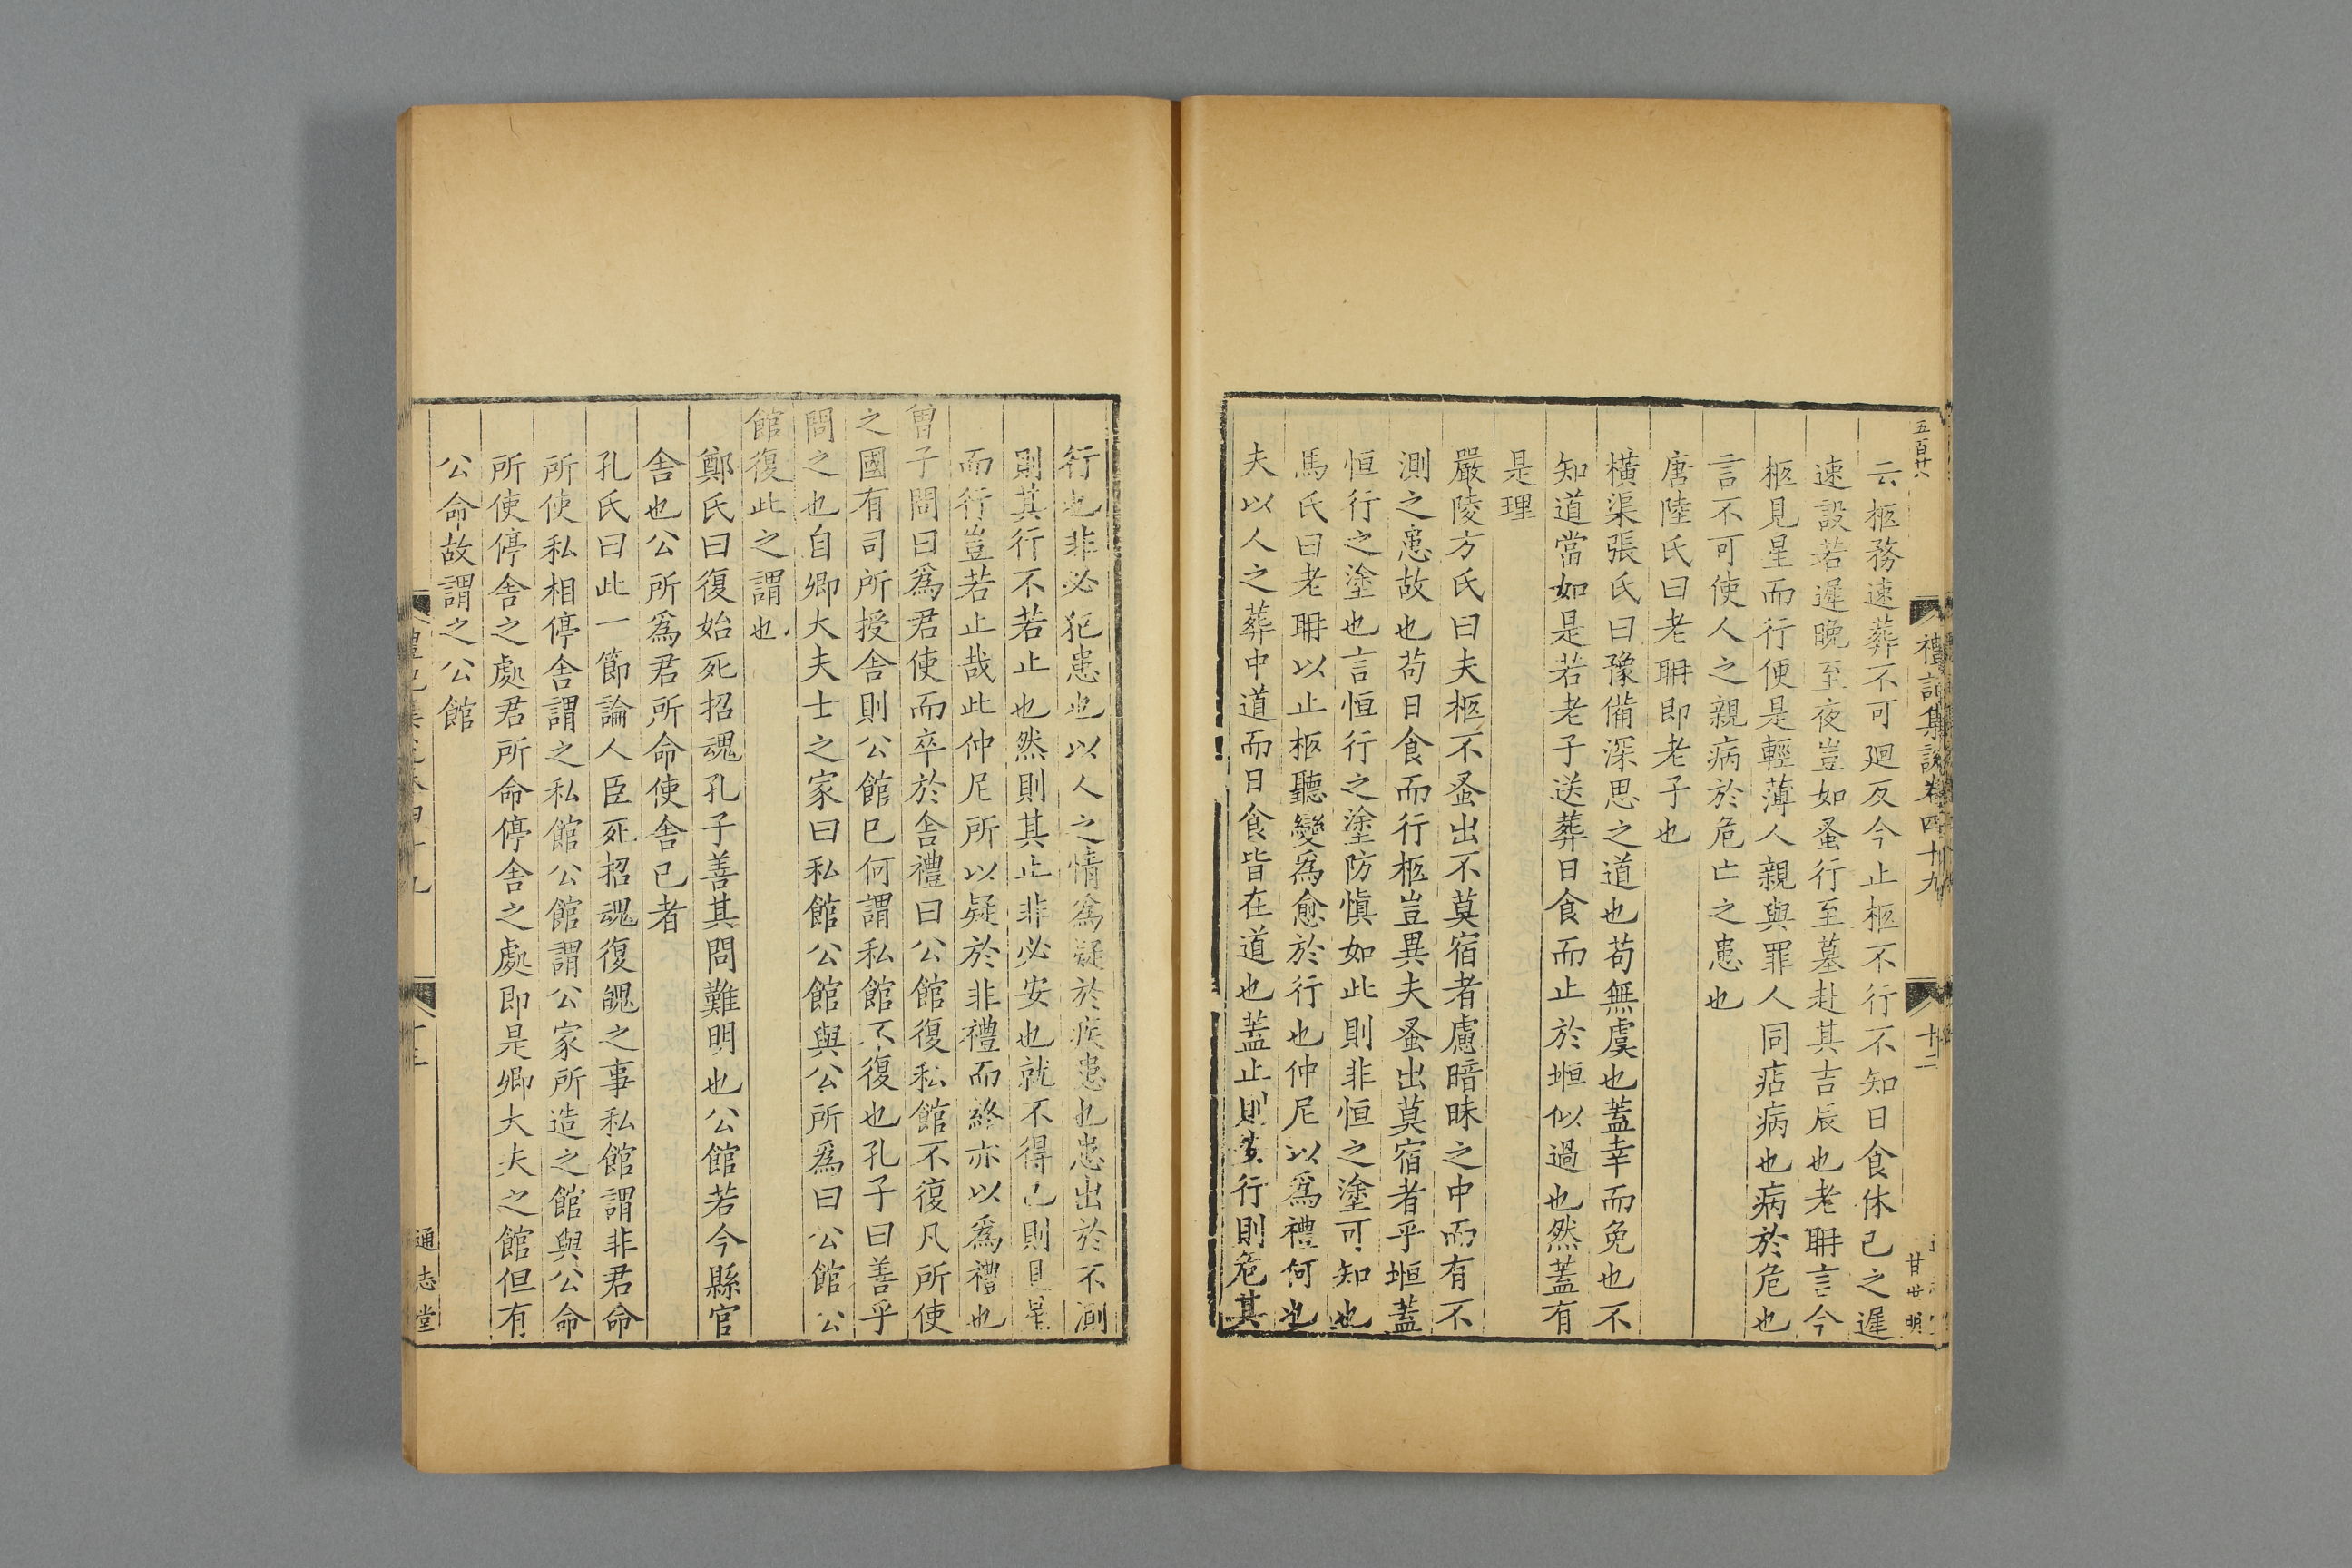 五百廿八
禮記集說卷四十九
十二
甘世明
云柩務速葬不可廻反今止柩不行不知日食休已之遲
速設若遲晚至夜豈如蚤行至墓赴其吉辰也老聃言今
柩見星而行便是輕薄人親與罪人同痁病也病於危也
言不可使人之親病於危亡之患也
唐陸氏曰老聃即老子也
橫渠張氏曰豫備深思之道也苟無虞也蓋幸而免也不
知道當如是若老子送葬日食而止於堩似過也然蓋有
是理
嚴陵方氏曰夫柩不蚤出不莫宿者慮暗昧之中而有不
測之患故也苟日食而行柩豈異夫蚤出莫宿者乎堩蓋
恒行之塗也言恒行之塗防愼如此則非恒之塗可知也
馬氏曰老聃以止柩聽變爲愈於行也仲尼以爲禮何也
夫以人之葬中道而日食皆在道也蓋止則安行則危其
行也非必犯患也以人之情爲疑於疾患也患出於不測
則其行不若止也然則其止非必安也就不得已則見星
而行豈若止哉此仲尼所以疑於非禮而終亦以爲禮也
曾子問曰爲君使而卒於舍禮曰公館復私館不復凡所使
之國有司所授舍則公館已何謂私館不復也孔子曰善乎
問之也自卿大夫士之家曰私館公館與公所爲曰公館公
館復此之謂也
鄭氏曰復始死招魂孔子善其問難明也公館若今縣官
舍也公所爲君所命使舍已者
孔氏曰此一節論人臣死招魂復魄之事私館謂非君命
所使私相停舍謂之私館公館謂公家所造之館與公命
所使停舍之處君所命停舍之處即是卿大夫之館但有
公命故謂之公館
通志堂